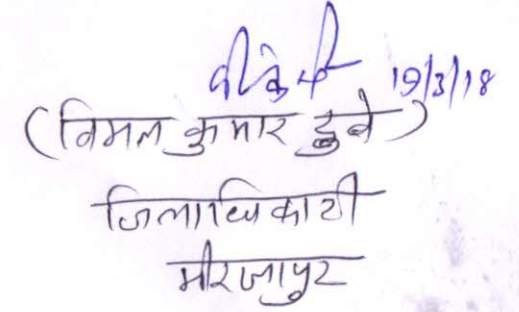 19/3/18
(विमल कुमार दुबे)
जिलाधिकारी
मीरजापुर